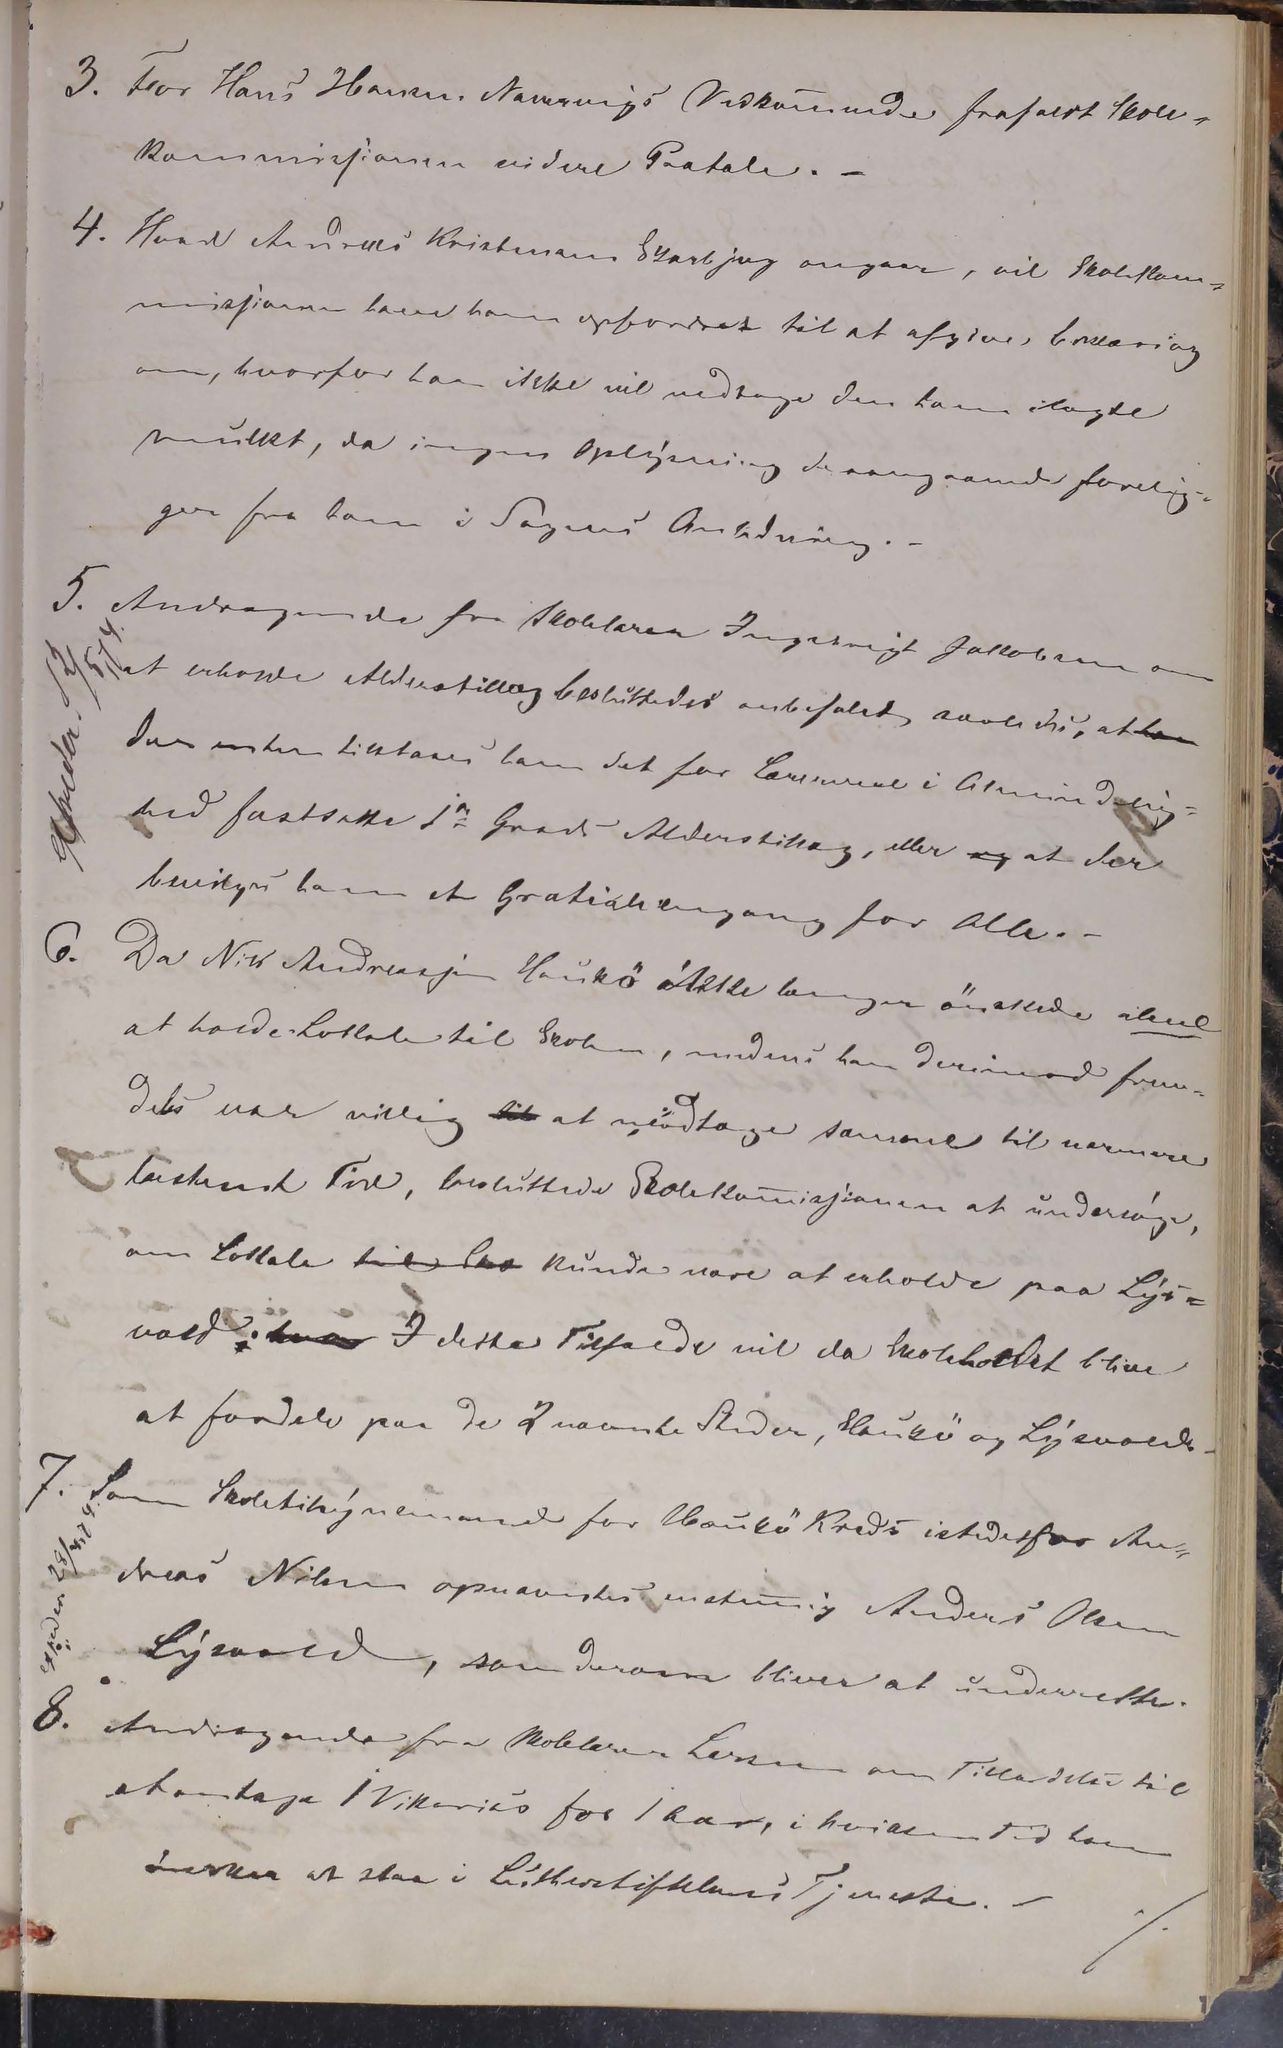 3. For Hans Hansen Naversvigs Vedkommende frafaldt Skole-
kommissjonen videre Paatale. -
4. Hvad Andreas Kristensen Skarbjug angaar, vil Skolekom-
missjonen have ham opfordret til at afgive, Erklæring
om, hvorfor han ikke vil vedtage den ham ilagte
mulkt, da ingen Oplysning derangaaende forelig-
ger fra ham i Sagens Anledning. -
5. Andragende fra Skolelærer Ingebrigt Jakobsen om
at erholde Alderstillæg besluttedes anbefalet, saaledes, at
der enten tilstaaes ham det for Lærerne i Almindelig-
hed fastsatte 1ste Grads Alderstillæg, eller og at der
bevilges ham et Gratiale engang for Alle. -
6. Da Nils Andreassen Haukö ikke længer önskede alene
at holde Lokale til Skolen, medens han derimod frem-
deles var villig til at modtage samme til nærmere
bestemt Tid, besluttede Skolekommissjonen at undersöge,
om Lokale til Sko kunde være at erholde paa Lys-
vold. I dette Tilfælde vil da Skoleholdet blive
at fordele paa de 2 nævnte Steder, Haukö og Lysvold. -
7. Som Skoletilsynsmand for Haukö Kreds istedetfor An-
dreas Nilsen opnævntes enstemmig Anders Olsen
Lysvold, som derom bliver at underrette.
8. Andragende fra Skolelærer Larsen om Tilladelse til
at antage 1 Vikarius for 1 Aar, i hvilken Tid han
önsker at staa i Lutherstiftelsens Tjeneste. -
./.
Exped. 12/5 74.
exped. 28/4 74.